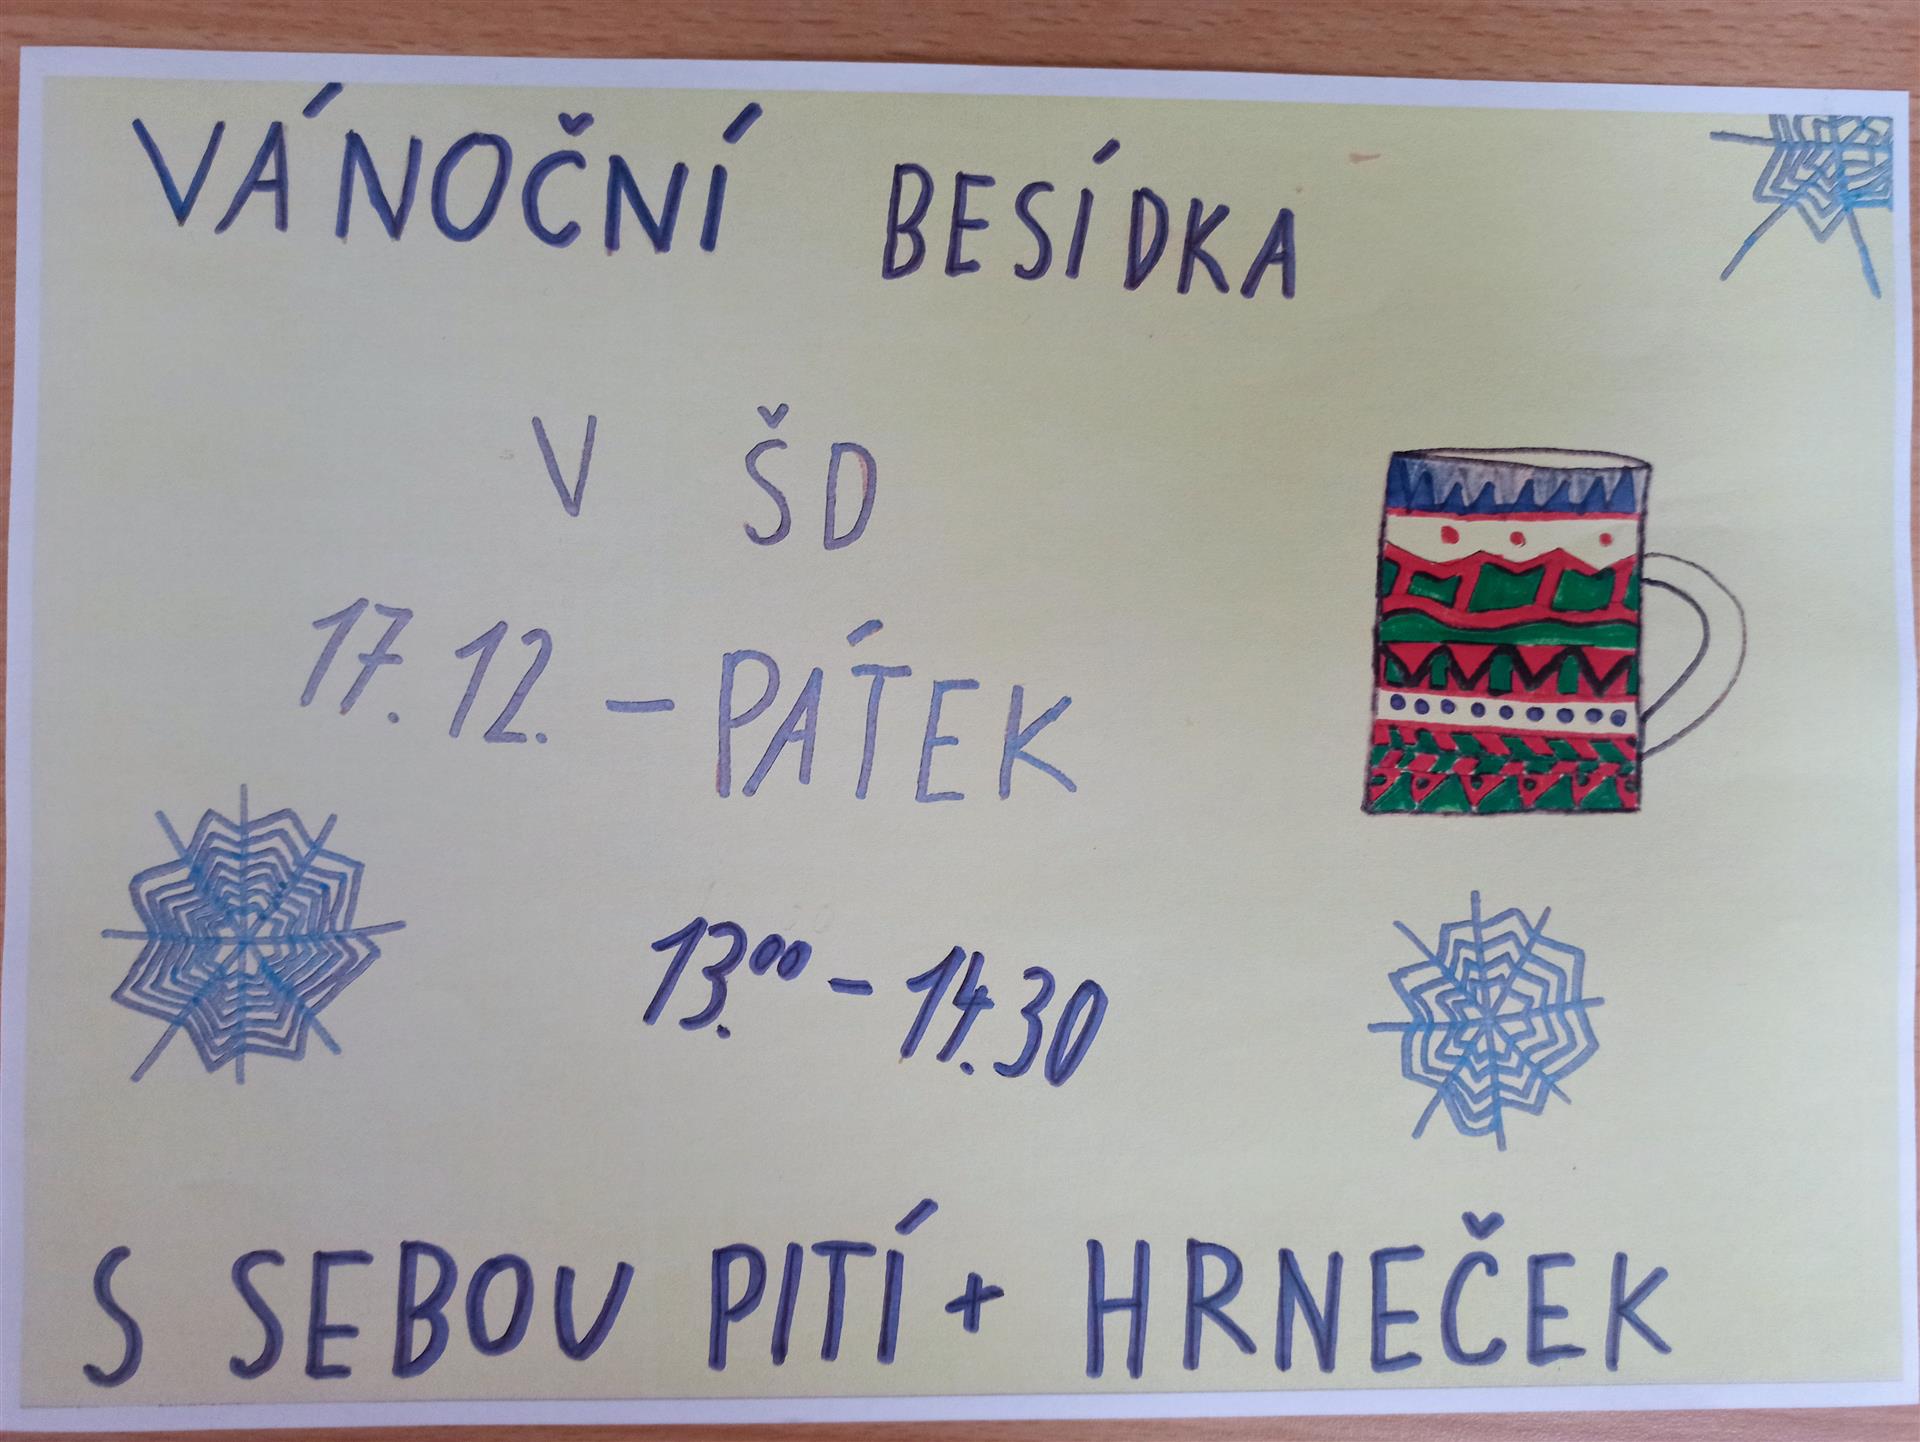 VÁNOČNÍ BESÍDKA
V ŠD
17. 12. - PÁTEK
13.00 - 14.30
S SEBOU PITÍ + HRNEČEK